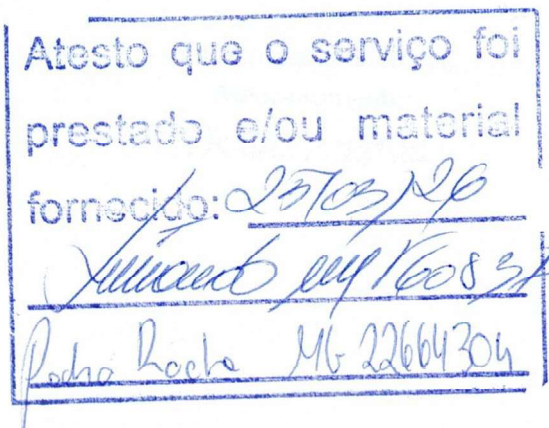 Atesto que o serviço foi
prestado e/ou material
fornecido: 25/03/26
Pedro Rocha MG 22664304